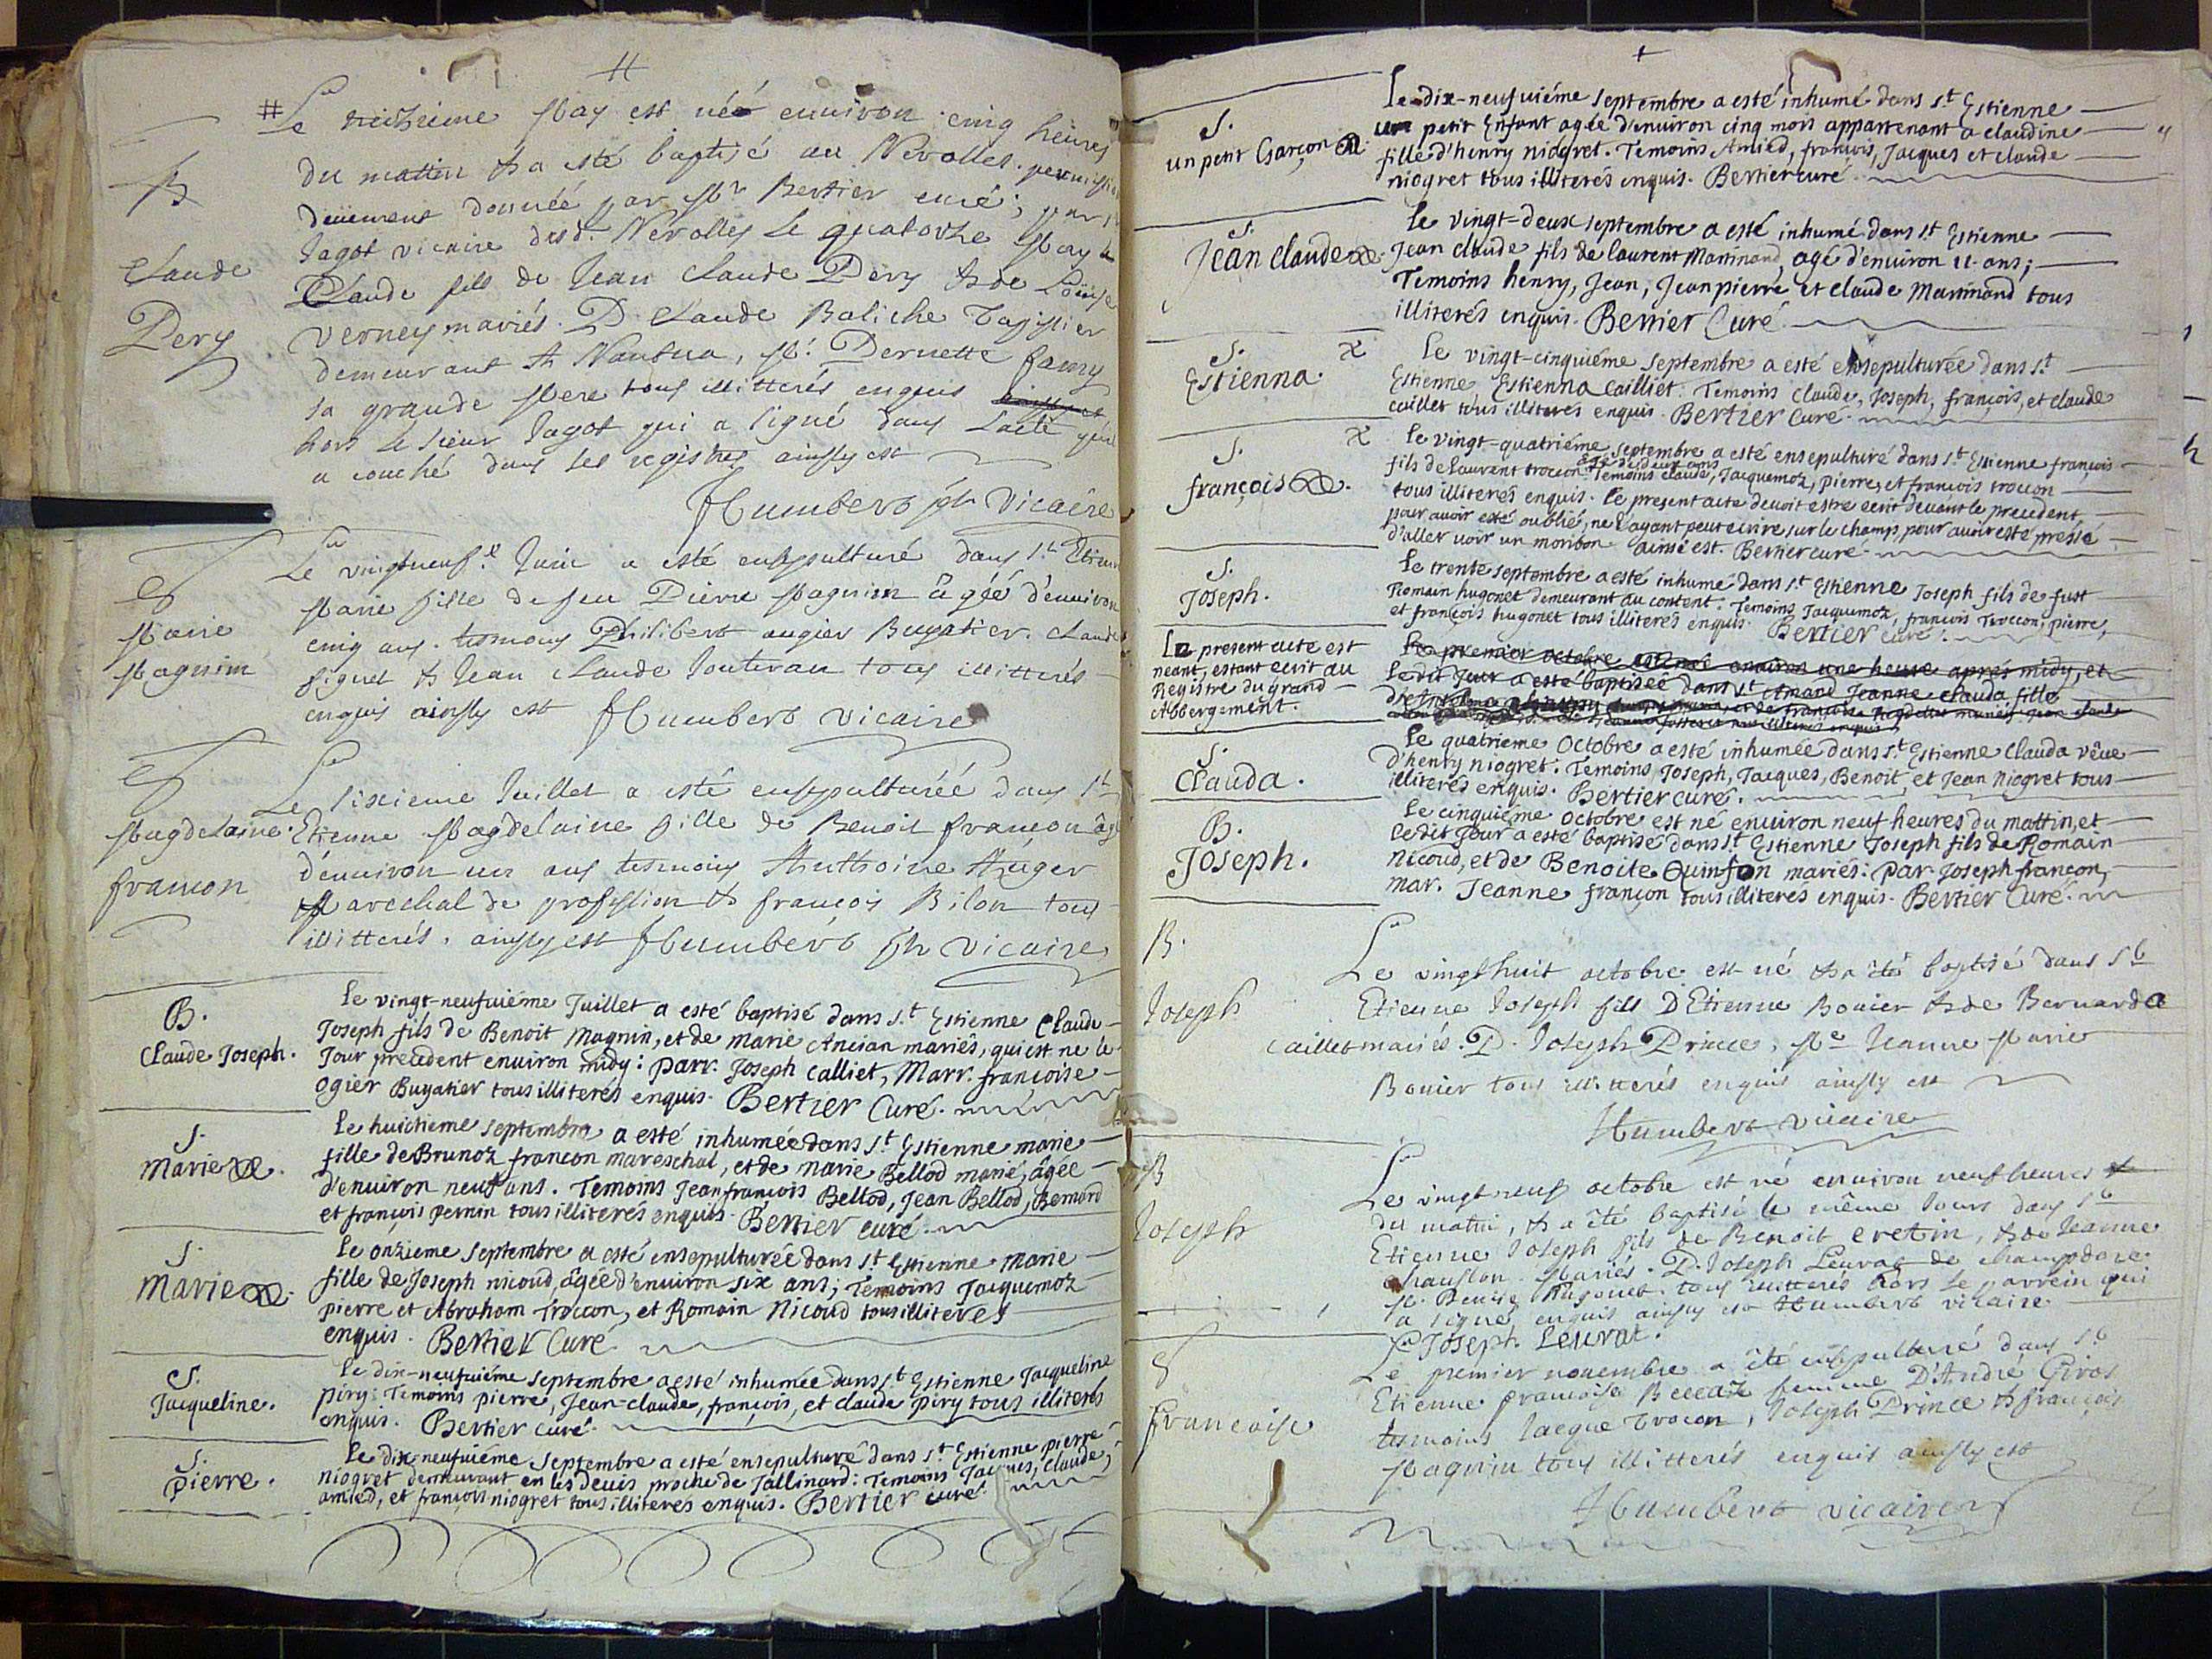 #Le treizieme May est né environ cinq heures
du mattin & a esté baptisé au Nevolles. permission
düement donnée par Mr Bertier curé, par
Jagot vicaire dud. Nerolles le quatorze May
B
Claude
Pery
Claude fils de Jean Claude Pery & de Loüise
Verney mariés. P. Claude Baliche Tapissier
demeurant à Nantua, M. Pernette famy
sa grande Mere tous illitterés enquis
hors le sieur Jagot qui a signé dans l'acte
a couché dans ses registres ainsy est
Humbert ptr Vicaire
S
Marie
Magnin
Le vingtneuf.e Juin a esté ensepulturé dans St. Etienne
Marie fille de feu Pierre Magnin âgéé d'environ
cinq ans. tesmoins Philibert augier Bugatier. Claude
piquet & Jean Claude Jouteran tous illitterés
enquis ainsy est Humbert Vicaire
S
Magdelaine
francon
Le sixieme Juillet a esté ensepulturéé dans St
Etienne Magdelaine fille de Benoit francon âgé
d'environ un ans tesmoins Anthoine Auger
Marechal de profession & francois Bilon tous
illitterés. ainsy est Humbert ptr Vicaire
B.
Claude Joseph.
Le vingt-neufuiéme Juillet a esté baptisé dans S.t Estienne Claude
Joseph fils de Benoit Magnin, et de marie Ancian mariés, qui est ne le
Jour precedent enuiron midy: Parr. Joseph Calliet, Marr. francoise
Ogier Bugatier tous illiterés enquis. Bertier Curé.
S.
Marie
Le huictieme septembre a esté inhumée dans S.t Estienne marie
fille de Brunoz francon mareschal, et de Marie Bellod marié, âgée
d'enuiron neuf ans. Temoins Jean francois Bellod, Jean Bellod, Bernard
et francois pernin tous illiterés enquis. Bertier curé
S.
Marie
Le onzieme septembre a esté ensepulturée dans S.t Estienne Marie
fille de Joseph nicoud, âgée d'enuiron six ans; Temoins Jacquemoz
pierre et Abraham Troccon, et Romain Nicoud tous illiterés
enquis. Bertier Curé
S.
Jacqueline.
Le dix-neufuiéme septembre a esté inhumée dans S.t Estienne Jacqueline
piry: Temoins pierre, Jean-claude, francois, et claude piry tous illiterés
enquis. Bertier curé
S.
pierre.
Le dix-neufuiéme Septembre a esté ensepulturé dans S.t Estienne pierre
niogret demeurant en les Deuis proche de Jallinard: Temoins Jacques, Claude,
amied, et francois niogret tous illiteres enquis. Bertier curé
S.
un petit Garçon
Le dix-neufuiéme septembre a esté inhumé dans S.t Estienne
un petit Enfant agée d'enuiron cinq mois appartenant a claudine
fille d'henry niogret. Temoins Amied, francois, Jacques et claude
niogret tous illiterés enquis. Bertier curé
S.
Jean claude
Le vingt-deux septembre a esté inhumé dans S.t Estienne
Jean claude fils de laurent Marinand, agé d'enuiron 11 ans;
Temoins henry, Jean, Jean pierre et claude Marinand tous
illiterés enquis. Bertier Curé
S.
Estienna.
Le vingt-cinquiéme septembre a esté ensepulturée dans S.t
Estienne Estienna Cailliet. Temoins Claude, Joseph, francois, et claude
caillet tous illiterés enquis. Bertier Curé
S.
françois
Le vingt-quatriéme septembre a esté ensepulturé dans S.t Estienne françois
fils de Laurent trocon âgé de deux ans Temoins claude, Jacquemoz, pierre, et francois troccon
tous illiterés enquis. Ce present acte deuoit estre ecrit deuant le precedent
pour auoir esté oublié, ne l'ayant peut ecrire sur le champ, pour auoir esté pressé
d'aller uoir un moribon. ainsi est. Bertier curé
S.
Joseph.
Le trente septembre a esté inhumé dans S.t Estienne Joseph fils de fust
Romain hugonet demeurant au content. Temoins Jacquemoz, francois Troccon, pierre,
et francois hugonet tous illiterés enquis. Bertier curé.
Le present acte est
neant, estant ecrit au
Registre du grand
Abbergement.
Le premier octobre est née enuiron une heure aprés midy, et
Le dit Jour a esté baptisée dans S.t Amand Jeanne Clauda fille
S.
Clauda.
Le quatrieme Octobre a esté inhumée dans S.t Estienne Clauda vêue
d'henry niogret. Temoins Joseph, Jacques, Benoit, et Jean Niogret tous
illiterés enquis. Bertier curé.
B.
Joseph.
Le cinquiéme Octobre est né enuiron neuf heures du mattin, et
le dit Jour a esté baptisé dans S.t Estienne Joseph fils de Romain
Nicoud, et de Benoite Quinson mariés: par. Joseph francon,
mar. Jeanne françon tous illiterés enquis. Bertier Curé.
B.
Joseph
Le vingthuit octobre est né & a été baptisé dans St
Etienne Joseph fils D'Etienne Bouier & de Bernarde
caillet mariés. P. Joseph Prince, Me Jeanne Marie
Bouier tous illitterés enquis ainsy est
Humbert vicaire
B
Joseph
Le vingt neuf octobre est né environ neuf heures
du matin, & a été baptisé le même Jour dans St
Etienne Joseph fils de Benoit cretin, & de Jeanne
Chauston. Mariés. P. Joseph Leuvat de champdore
M. Benite Hugonet. tous illitterés hors le parrein qui
a signé enquis ainsy est Humbert vicaire
Joseph. Leuvrat.
S
francoise
Le premier novembre a été ensepulturé dans St
Etienne francoise femme D'André Giros
tesmoins Jacque Trocon, Joseph Prince & francois
Magnin tous illitterés enquis ainsy est
Humbert vicaire